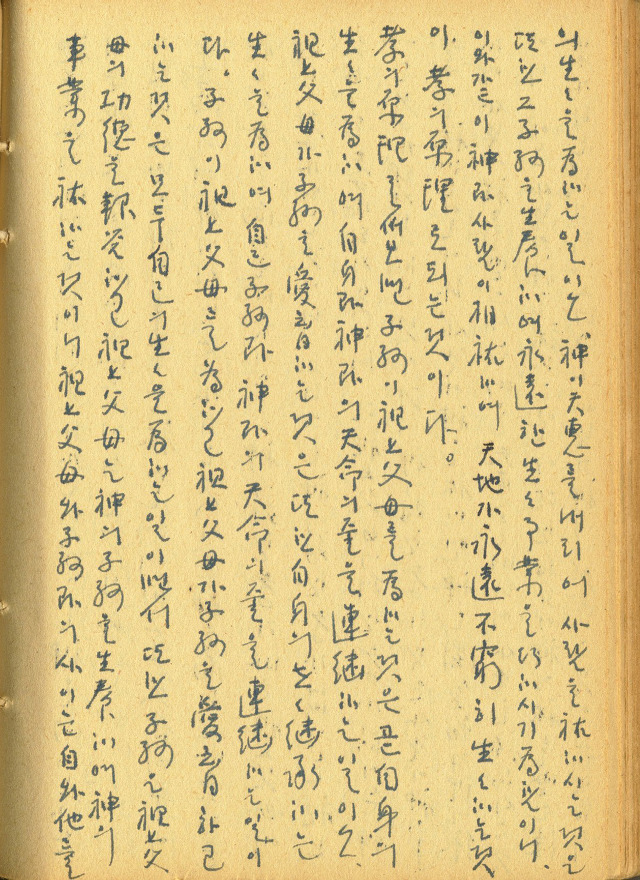 의 生生을 爲하는 일이오, 神이 天惠를 내리어 사람을 祐하시는 것은
또한 그 子孫을 生養하여 永遠한 生生事業을 다하시기 爲함이니,
이와 같이 神과 사람이 相祐하여 天地가 永遠不窮히 生生하는 것
이 孝의 原理로 되는 것이다。
孝의 原理를 써보면 子孫이 祖上父母를 爲하는 것은 곧 自身의
生生을 爲하여 自身과 神과의 天命의 줄을 連繼하는 일이오,
祖上父母가 子孫을 愛育하는 것은 또한 自身의 生生繼承하는
生生을 爲하여 自己 子孫과 神과의 天命의 줄을 連繼하는 일이
다。子孫이 祖上父母를 爲하고 祖上父母가 子孫을 愛育하고
하는 것은 모두 自己의 生生을 爲하는 일이면서 또한 子孫은 祖上父
母의 功德을 報答하고 祖上父母는 神의 子孫을 生養하여 神의
事業을 祐하는 것이니 祖上父母와 子孫과의 사이는 自와 他를